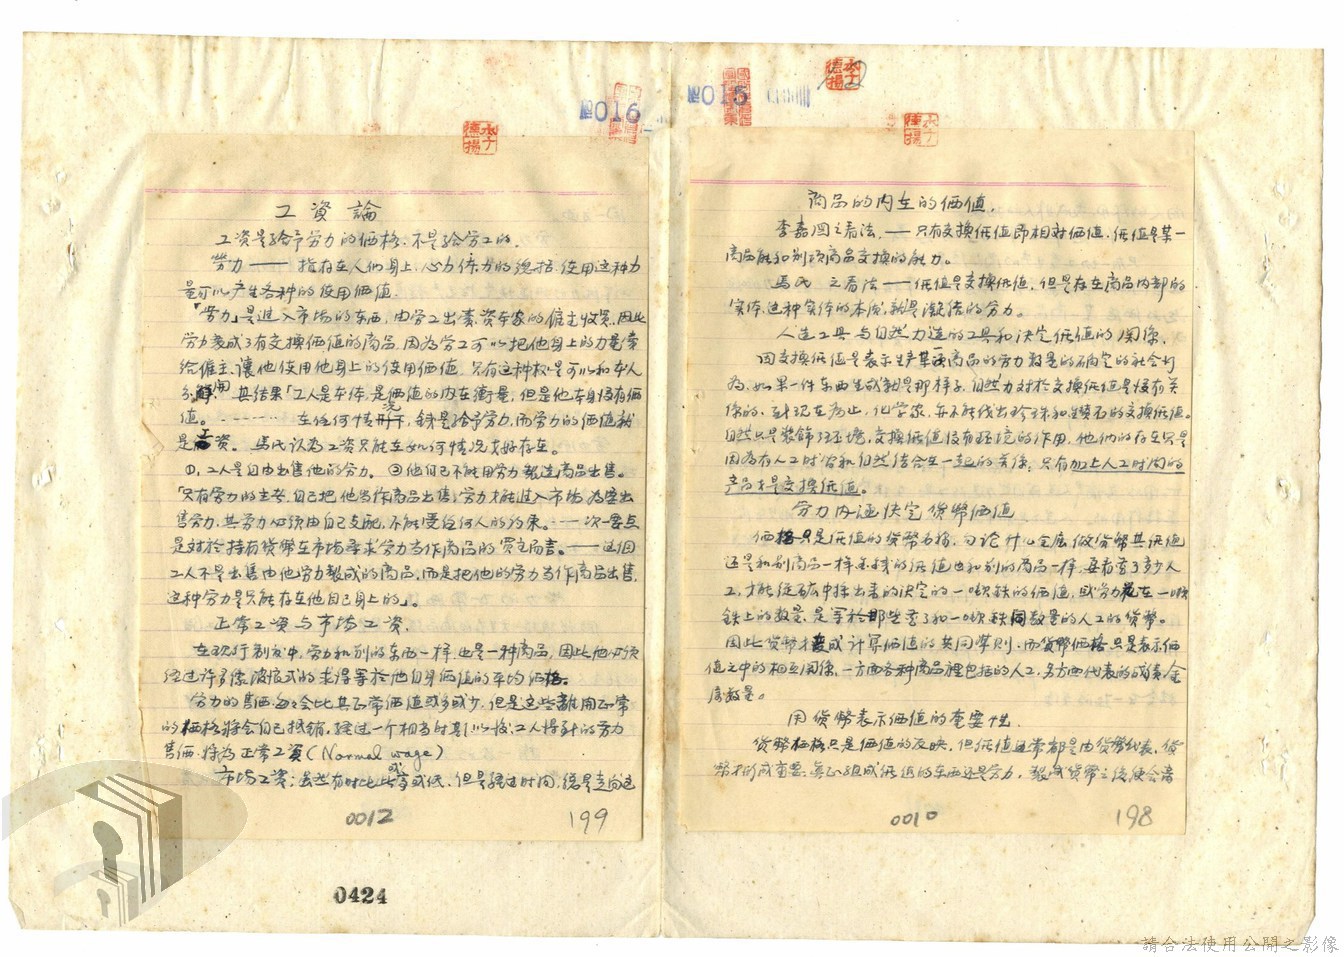 015
商品的內在的価值.
李嘉図之看法,——只有交換価值即相対価值.価值是某一
商品能和別項商品交換的能力。
馬氏之看法——価值是交換価值,但是存在商品內部的
实体.这种实体的本质,就是凝結的劳力。
人造工具与自然力造的工具和決定価值的関係.
因交換価值是表示生产某項商品的劳力数量的確定的社会行
為,如果一件东西生成就是那样子,自然力对於交換価值是没有关
係的.到現在為止,化学家,並不能找出珍珠和鑽石的交換価值。
自然只是装飾环境,交換価值没有环境的作用,他們的存在只是
因為有人工时间和自然結合在一起的关係,只有加上人工时间的
产品才是交換価值。
劳力內涵決定貨幣価值
価格只是価值的貨幣名稱,勿論什么金屬做貨幣其価值
还是和別商品一样金錢的価值也和別的商品一样,要看离了多少人
工,才能從砿中採出来的決定的一噸鉄的価值,或劳力花在一噸
鉄上的数量,是等於那些金子和一噸鉄同数量的人工的貨幣。
因此貨幣才变成计算価值的共同準則.而貨幣価格只是表示価
值之中的相互関係,一方面各种商品裡包括的人工,另方面代表的成績,金
屬数量。
用貨幣表示価值的重要性.
貨幣価格只是価值的反映,但価值通常都是由貨幣代表,貨
幣才形成重要,真正組成価值的东西还是劳力,製成貨幣之後便会著
0010
198
016
工資論
工資是給予劳力的価格,不是給劳工的.
劳力——指存在人們身上,心力体力的總括,使用这种力
量可以产生各种的使用価值.
「劳力」是进入市場的东西,由劳工出卖,資本家的僱主收買,因此
劳力变成了有交換価值的商品,因為劳工可以把他身上的力量卖
給僱主,讓他使用他身上的使用価值,只有这种权是可以和本人
分開.其結果「工人是本体,是価值的內在衡量,但是他本身没有価
值。………在任何情況下,錢是給予劳力,而劳力的価值就
是工資。馬氏认為工資只能在如何情況才好存在。
①,工人是自由出售他的劳力。②他自己不能用劳力製造商品出售。
「只有劳力的主要,自己把他当作商品出售,劳力才能进入市場,為要出
售劳力,其劳力必须由自己支配,不能受任何人的約束。——次一要点
是対於持有貨幣在市場尋求劳力当作商品的買主而言。——这個
工人不是出售由他劳力製成的商品,而是把他的劳力当作商品出售,
这种劳力是只能存在他自己身上的」。
正常工資与市場工資.
在現行制度中,劳力和別的东西一样也是一种商品,因此他必须
经过许多像波浪式的求得等於他自身価值的平均価格。
劳力的售価,每々会比其正常価值或多或少,但是这些離開正常
的価格将会自己抵銷,经过一个相当时期以後,工人得到的劳力
售価.将為正常工資(Normal wage)
市場工資,虽然有时比此高或低,但是经过时间,總是走向这
0012
199
0424
請合法使用公開之影像